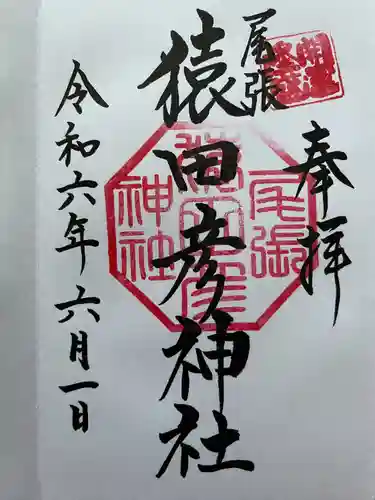 奉拝
尾張
猿田彦神社
令和六年六月一日
尾張
猿田彦
神社